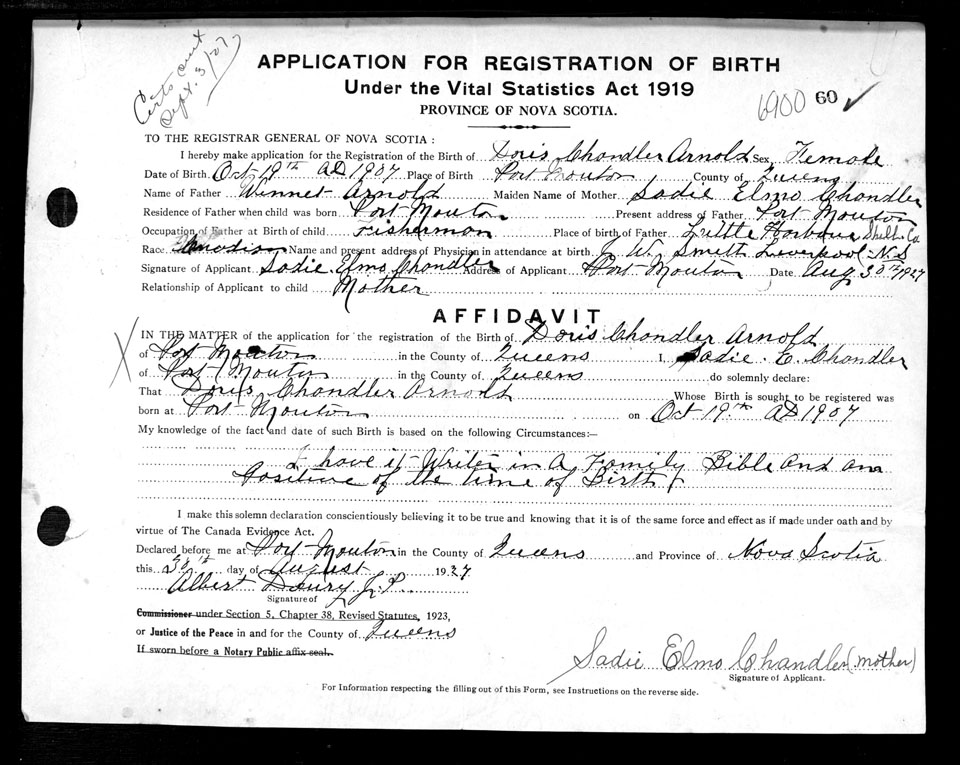 Certs sent
Sept. 3/27
APPLICATION FOR REGISTRATION OF BIRTH
Under the Vital Statistics Act 1919
PROVINCE OF NOVA SCOTIA.
6900 60 ✓
TO THE REGISTRAR GENERAL OF NOVA SCOTIA:
I hereby make application for the Registration of the Birth of Doris Chandler Arnold Sex Female
Date of Birth. Oct 19th AD 1907 Place of Birth Port Mouton County of Queens
Name of Father Winnet Arnold Maiden Name of Mother Sadie Elmo Chandler
Residence of Father when child was born Port Mouton Present address of Father Port Mouton
Occupation of Father at Birth of child Fisherman Place of birth of Father Little Harbour Shelb Co
Race Canadian Name and present address of Physician in attendance at birth J. W. Smith Liverpool N.S
Signature of Applicant Sadie Elmo Chandler Address of Applicant Port Mouton Date Aug 30th 1927
Relationship of Applicant to child Mother
AFFIDAVIT
X
IN THE MATTER of the application for the registration of the Birth of Doris Chandler Arnold
of Port Mouton in the County of Queens I, Sadie. E. Chandler
of Port Mouton in the County of Queens do solemnly declare:
That Doris Chandler Arnold Whose Birth is sought to be registered was
born at Port Mouton on Oct 19th AD 1907
My knowledge of the fact and date of such Birth is based on the following Circumstances:—
I have it Writen in A Family Bible and am
Positive of the time of Birth
I make this solemn declaration conscientiously believing it to be true and knowing that it is of the same force and effect as if made under oath and by
virtue of The Canada Evidence Act.
Declared before me at Port Mouton in the County of Queens and Province of Nova Scotia
this 30th day of August 1927
Albert J.P.
Signature of
Commissioner under Section 5, Chapter 38, Revised Statutes, 1923,
or Justice of the Peace in and for the County of Queens
If sworn before a Notary Public affix seal.
Sadie Elmo Chandler (Mother)
Signature of Applicant.
For Information respecting the filling out of this Form, see Instructions on the reverse side.